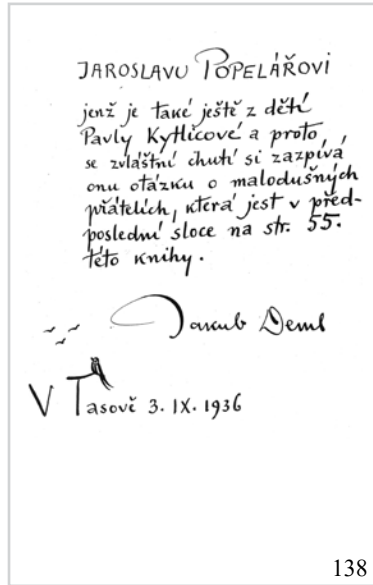 JAROSLAVU POPELÁŘOVI
jenž je také ještě z dětí
Pavly Kytlicové a proto,
se zvláštní chutí si zazpívá
onu otázku o malodušných
přátelích, která jest v před-
poslední sloce na str. 55.
této knihy.
Jakub Deml
V Tasově 3. IX. 1936
138